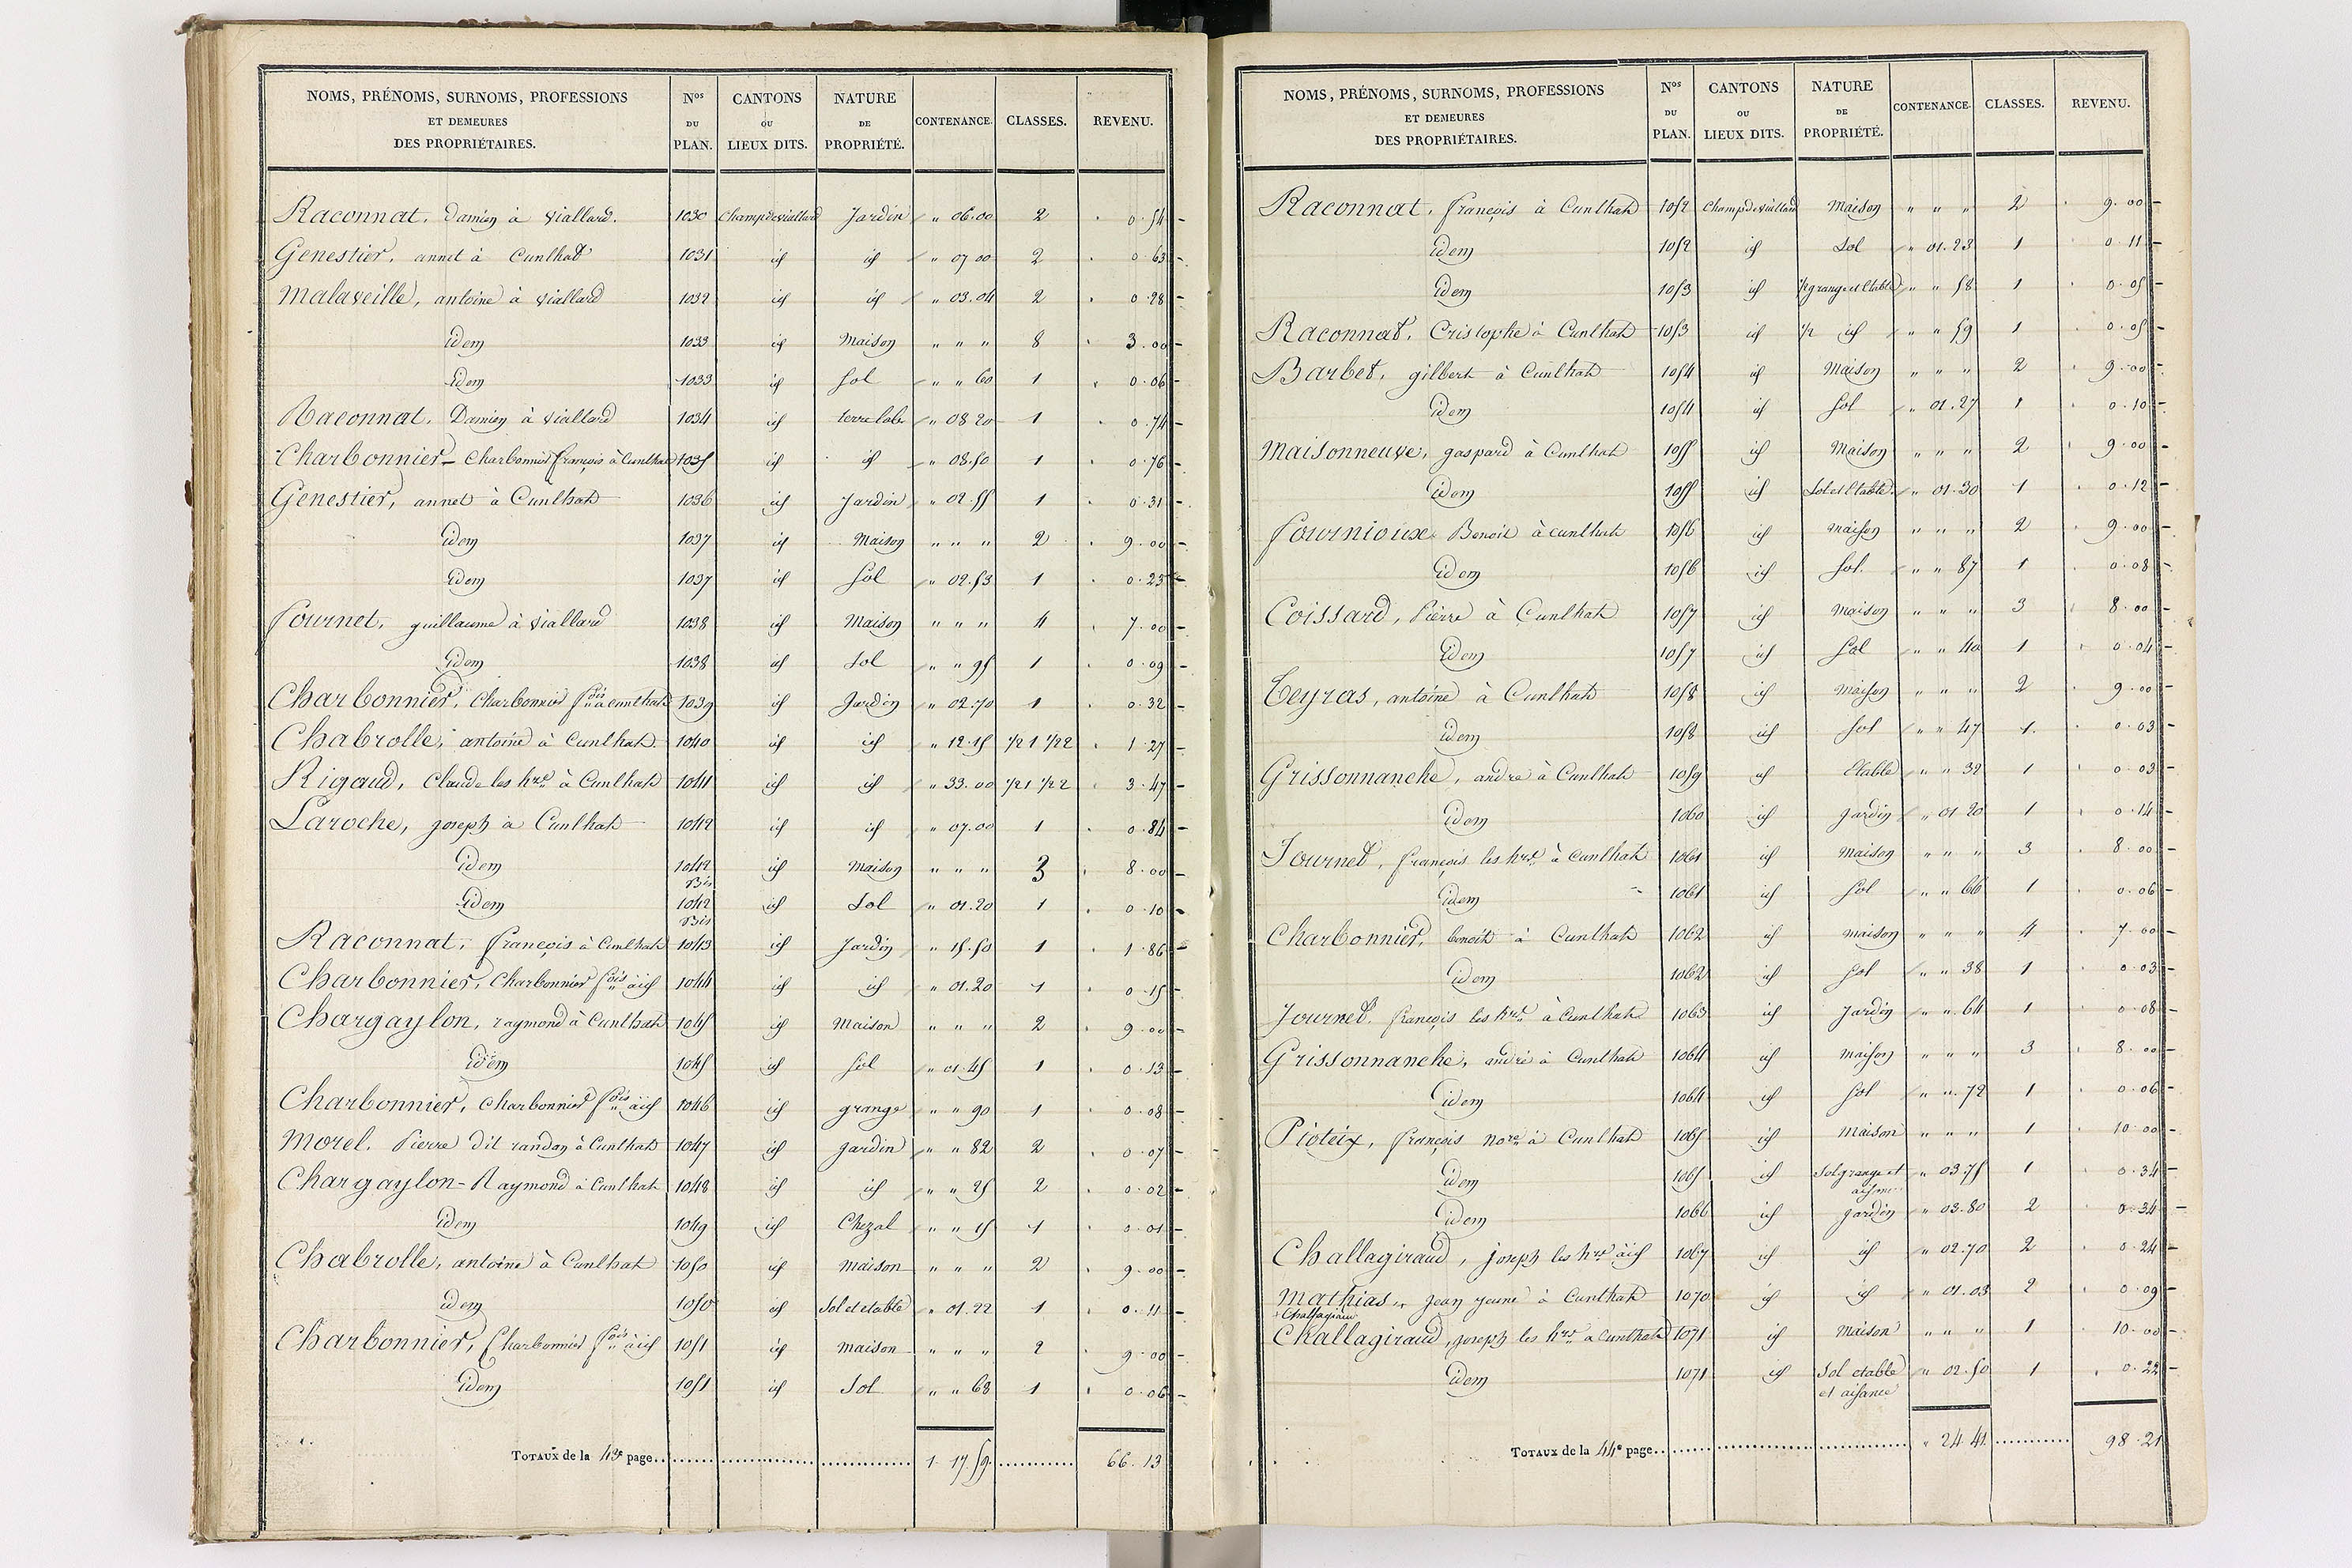 NOMS, PRÉNOMS, SURNOMS, PROFESSIONS ET DEMEURES DES PROPRIÉTAIRES. Nos DU PLAN. CANTONS OU LIEUX DITS. NATURE DE PROPRIÉTÉ. CONTENANCE. CLASSES. REVENU.
Raconnat, Damien à Viallard. 1030 Champ de viallard Jardin " 06.00 2 0.54
Genestier, annet à Cunlhat 1031 id id " 07 00 2 0.63
Malaveille, antoine à viallard 1032 id id " 03.04 2 0.28
idem 1033 id Maison " " " 8 3.00
idem 1033 id Sol " " 60 1 0.06
Raconnat, Damien à Viallard 1034 id terre lab. " 08 20 1 0.74
Charbonnier - Charbonnier françois à Cunlhat 1035 id id " 08.50 1 0.76
Genestier, annet à Cunlhat 1036 id Jardin " 02.55 1 0.31
idem 1037 id Maison " " " 2 9.00
idem 1037 id Sol " 02.53 1 0.23
fournet, guillaume à viallard 1038 id Maison " " " 4 7.00
idem 1038 id Sol " " 95 1 0.09
Charbonnier, Charbonnier fois à cunlhat 1039 id Jardin " 02.70 1 0.32
Chabrolle, antoine à Cunlhat 1040 id id " 12.15 1/2 1 1/2 2 1.27
Rigaud, Claude les hres à Cunlhat 1041 id id " 33.00 1/2 1 1/2 2 3.47
Laroche, joseph à Cunlhat 1042 id id " 07.00 1 0.84
idem 1042 Bis id Maison " " " 3 8.00
idem 1042 Bis id Sol " 01.20 1 0.10
Raconnat, françois à Cunlhat 1043 id Jardin " 15.50 1 1.86
Charbonnier, Charbonnier fois à id 1044 id id " 01.20 1 0.15
Chargaylon, raymond à Cunlhat 1045 id Maison " " " 2 9.00
idem 1045 id Sol " 01.45 1 0.13
Charbonnier, Charbonnier fois à id 1046 id grange " " 90 1 0.08
Morel, Pierre dit randan à Cunlhat 1047 id jardin " " 82 2 0.07
Chargaylon - Raymond à Cunlhat 1048 id id " " 25 2 0.02
idem 1049 id Chezal " " 15 1 0.01
Chabrolle, antoine à Cunlhat 1050 id maison " " " 2 9.00
idem 1050 id Sol et etable " 01.22 1 0.11
Charbonnier, Charbonnier fois à id 1051 id maison " " " 2 9.00
idem 1051 id Sol " " 68 1 0.06
TOTAUX de la 43e page 1 17 59 66.13
NOMS, PRÉNOMS, SURNOMS, PROFESSIONS ET DEMEURES DES PROPRIÉTAIRES. Nos DU PLAN. CANTONS OU LIEUX DITS. NATURE DE PROPRIÉTÉ. CONTENANCE. CLASSES. REVENU.
Raconnat, françois à Cunlhat 1052 Champ de viallard Maison " " " 2 9.00
idem 1052 id Sol " 01.23 1 0.11
idem 1053 id 1/2 grange et Etable " " 58 1 0.05
Raconnat, Cristophe à Cunlhat 1053 id 1/2 id " " 59 1 0.05
Barbet, gilbert à Cunlhat 1054 id Maison " " " 2 9.00
idem 1054 id Sol " 01.27 1 0.10
Maisonneuve, gaspard à Cunlhat 1055 id Maison " " " 2 9.00
idem 1055 id Sol et Etable " 01.30 1 0.12
fournioux Benoit à cunlhat 1056 id maison " " " 2 9.00
idem 1056 id Sol " " 87 1 0.08
Coissard, Pierre à Cunlhat 1057 id Maison " " " 3 8.00
idem 1057 id Sol " " 40 1 0.04
Teyras, antoine à Cunlhat 1058 id Maison " " " 2 9.00
idem 1058 id Sol " " 47 1 0.03
Grissonnanche, andre à Cunlhat 1059 id Etable " " 32 1 0.03
idem 1060 id jardin " 01 20 1 0.14
Journet, françois les hres à Cunlhat 1061 id maison " " " 3 8.00
idem 1061 id Sol " " 66 1 0.06
Charbonnier, benoit à Cunlhat 1062 id maison " " " 4 7.00
idem 1062 id Sol " " 38 1 0.03
Journet françois les hres à Cunlhat 1063 id Jardin " " 64 1 0.08
Grissonnanche, andré à Cunlhat 1064 id maison " " " 3 8.00
idem 1064 id Sol " " 72 1 0.06
Pioteix, françois nore à Cunlhat 1065 id Maison " " " 1 10.00
idem 1065 id Sol grange et " 03.75 1 0.34
idem 1066 id jardin " 03.80 2 0.34
Challagiraud, joseph les hres à id 1067 id id " 02.70 2 0.24
Mathias, jean jeune à Cunlhat 1070 id id " 01.03 2 0.09
Challagiraud
Challagiraud, joseph les hres à Cunlhat 1071 id Maison " " " 1 10.00
idem 1071 id Sol etable et aisance " 02.50 1 0.22
TOTAUX de la 44e page " 24 41 98.21